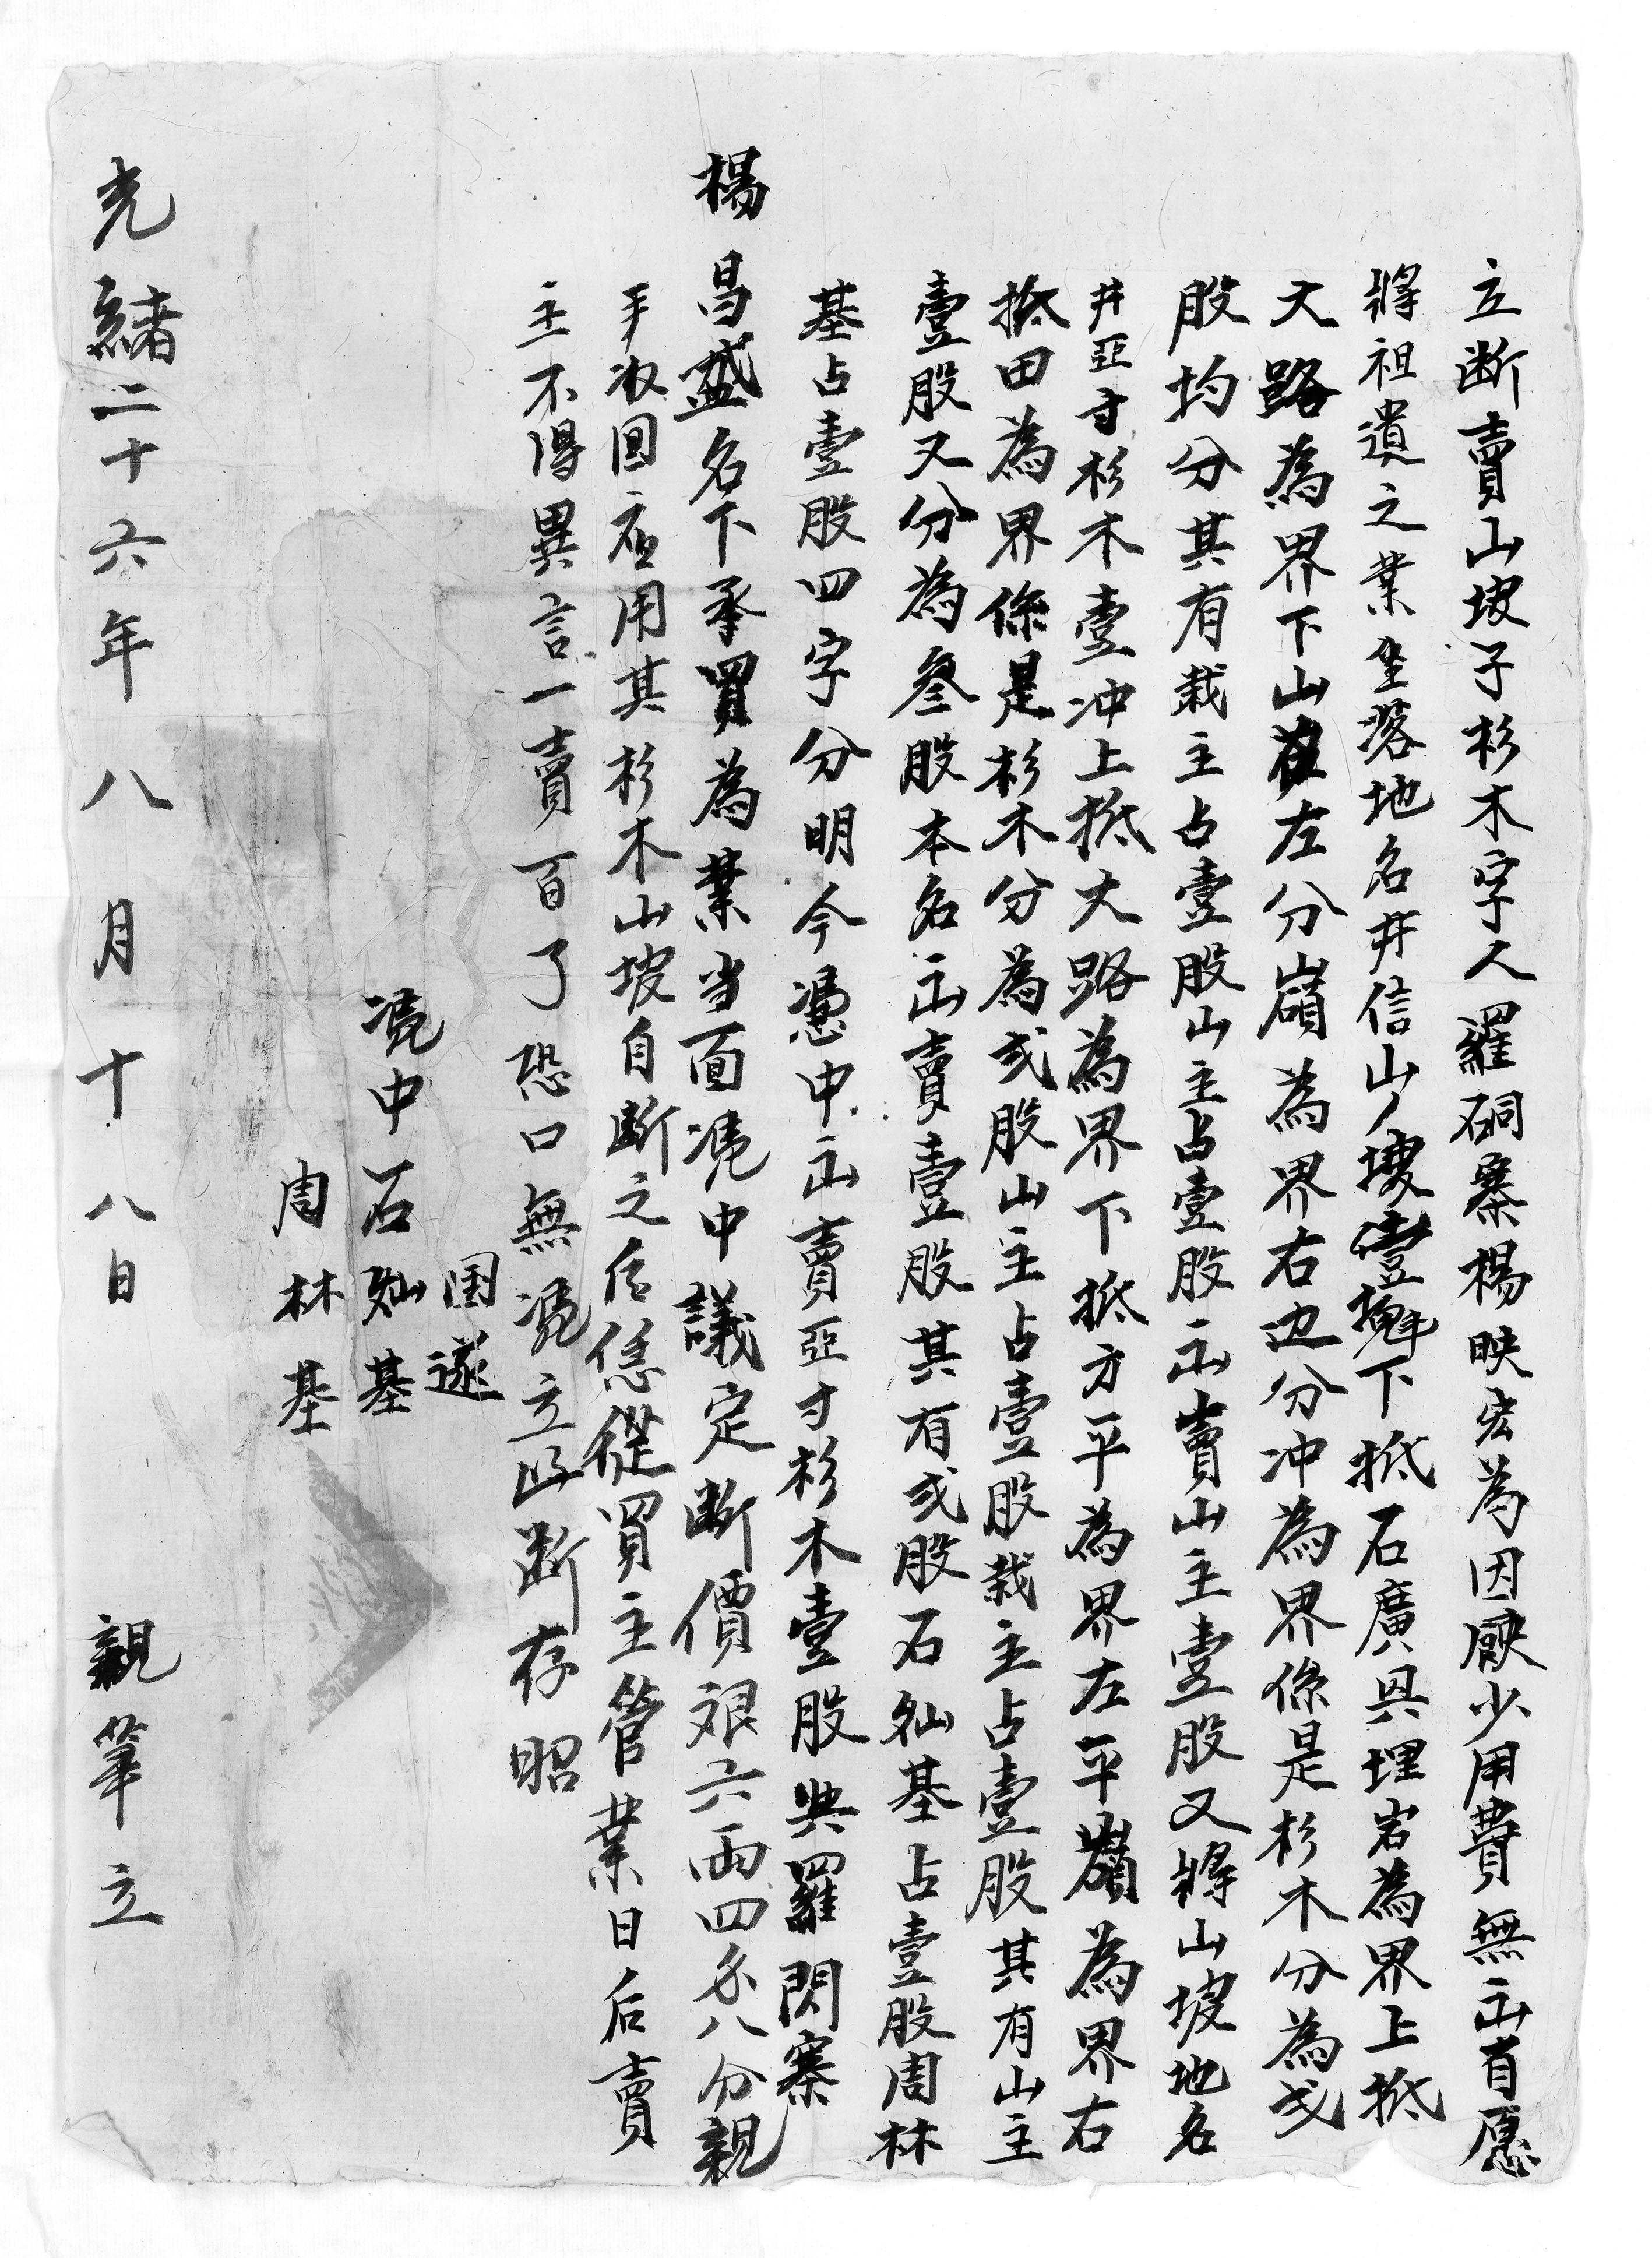 立断賣山坡子杉木字人羅硐寨楊映宏為因厥少用費無出自愿
將祖遺之業坐落地名井信山坡壹下抵石廣與埋岩為界上抵
大路為界下山左分嶺為界右边分冲為界係是杉木分為弍
股均分其有栽主占壹股山主占壹股出賣山主壹股又將山坡地名
井亞寸杉木壹冲上抵大路為界下抵方平為界左平嶺為界右
抵田為界係是杉木分為弍股山主占壹股栽主占壹股其有山主
壹股又分為叄股本名出賣壹股其有弍股石灿基占壹股周林
基占壹股四字分明今憑中出賣亞寸杉木壹股與羅閃寨
楊昌盛名下承買為業当面凴中議定断價艮六两四𠆤八分親
手收囬應用其杉木山坡自断之后恁從買主管業日后賣
主不得異言一賣百了恐口無凴立此断存昭
国遂
凴中石灿基
周林基
光緒二十六年八月十八日親筆立